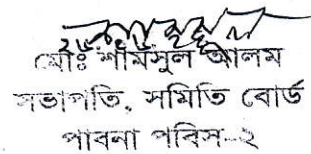 মোঃ শামসুল আলম
সভাপতি, সমিতি বোর্ড
পাবনা পবিস-২